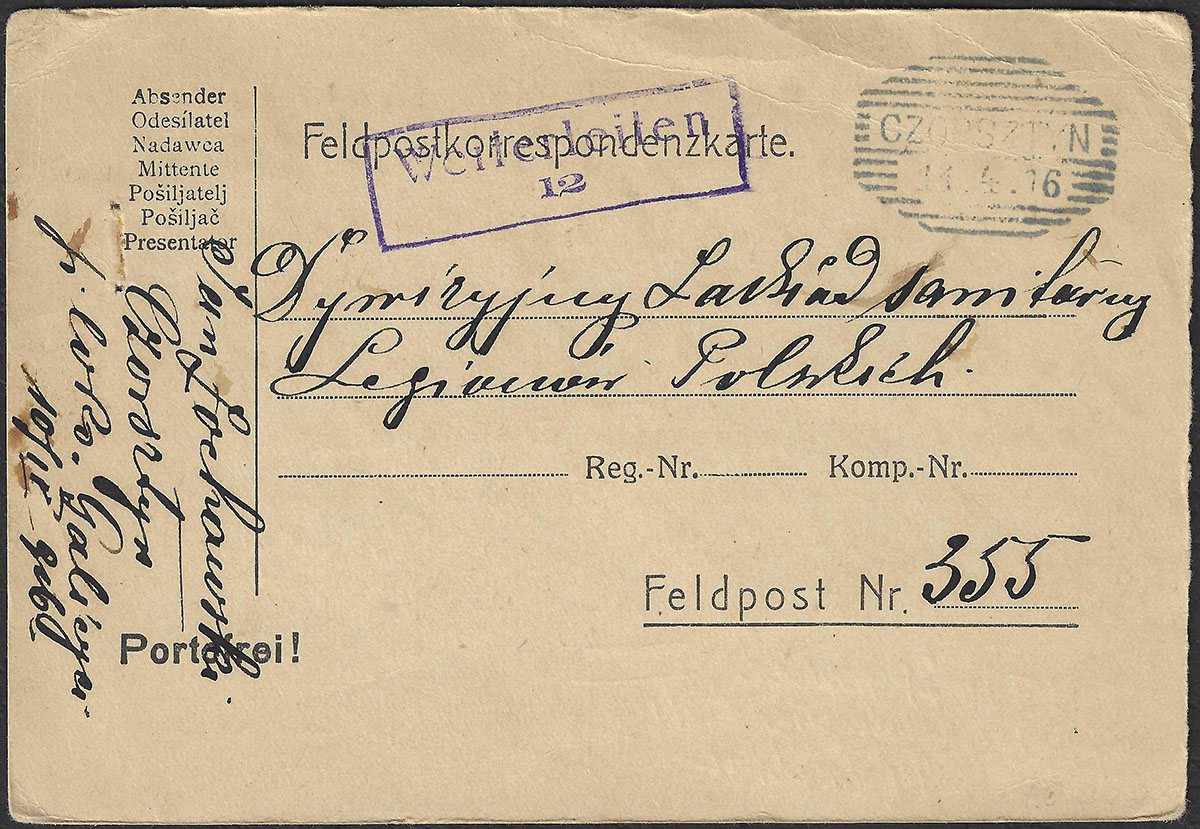 Absender
Odesílatel
Nadawca
Mittente
Pošiljatelj
Pošiljač
Presentator
Feldpostkorrespondenzkarte.
Weiterleiten
12
CZORSZTYN
11.4.16
Dywizyjny Zakład sanitarny
Legionów Polskich.
Reg.-Nr. Komp.-Nr.
Feldpost Nr. 355
Jan Lochowski
Czorsztyn
Galicya
Portofrei!